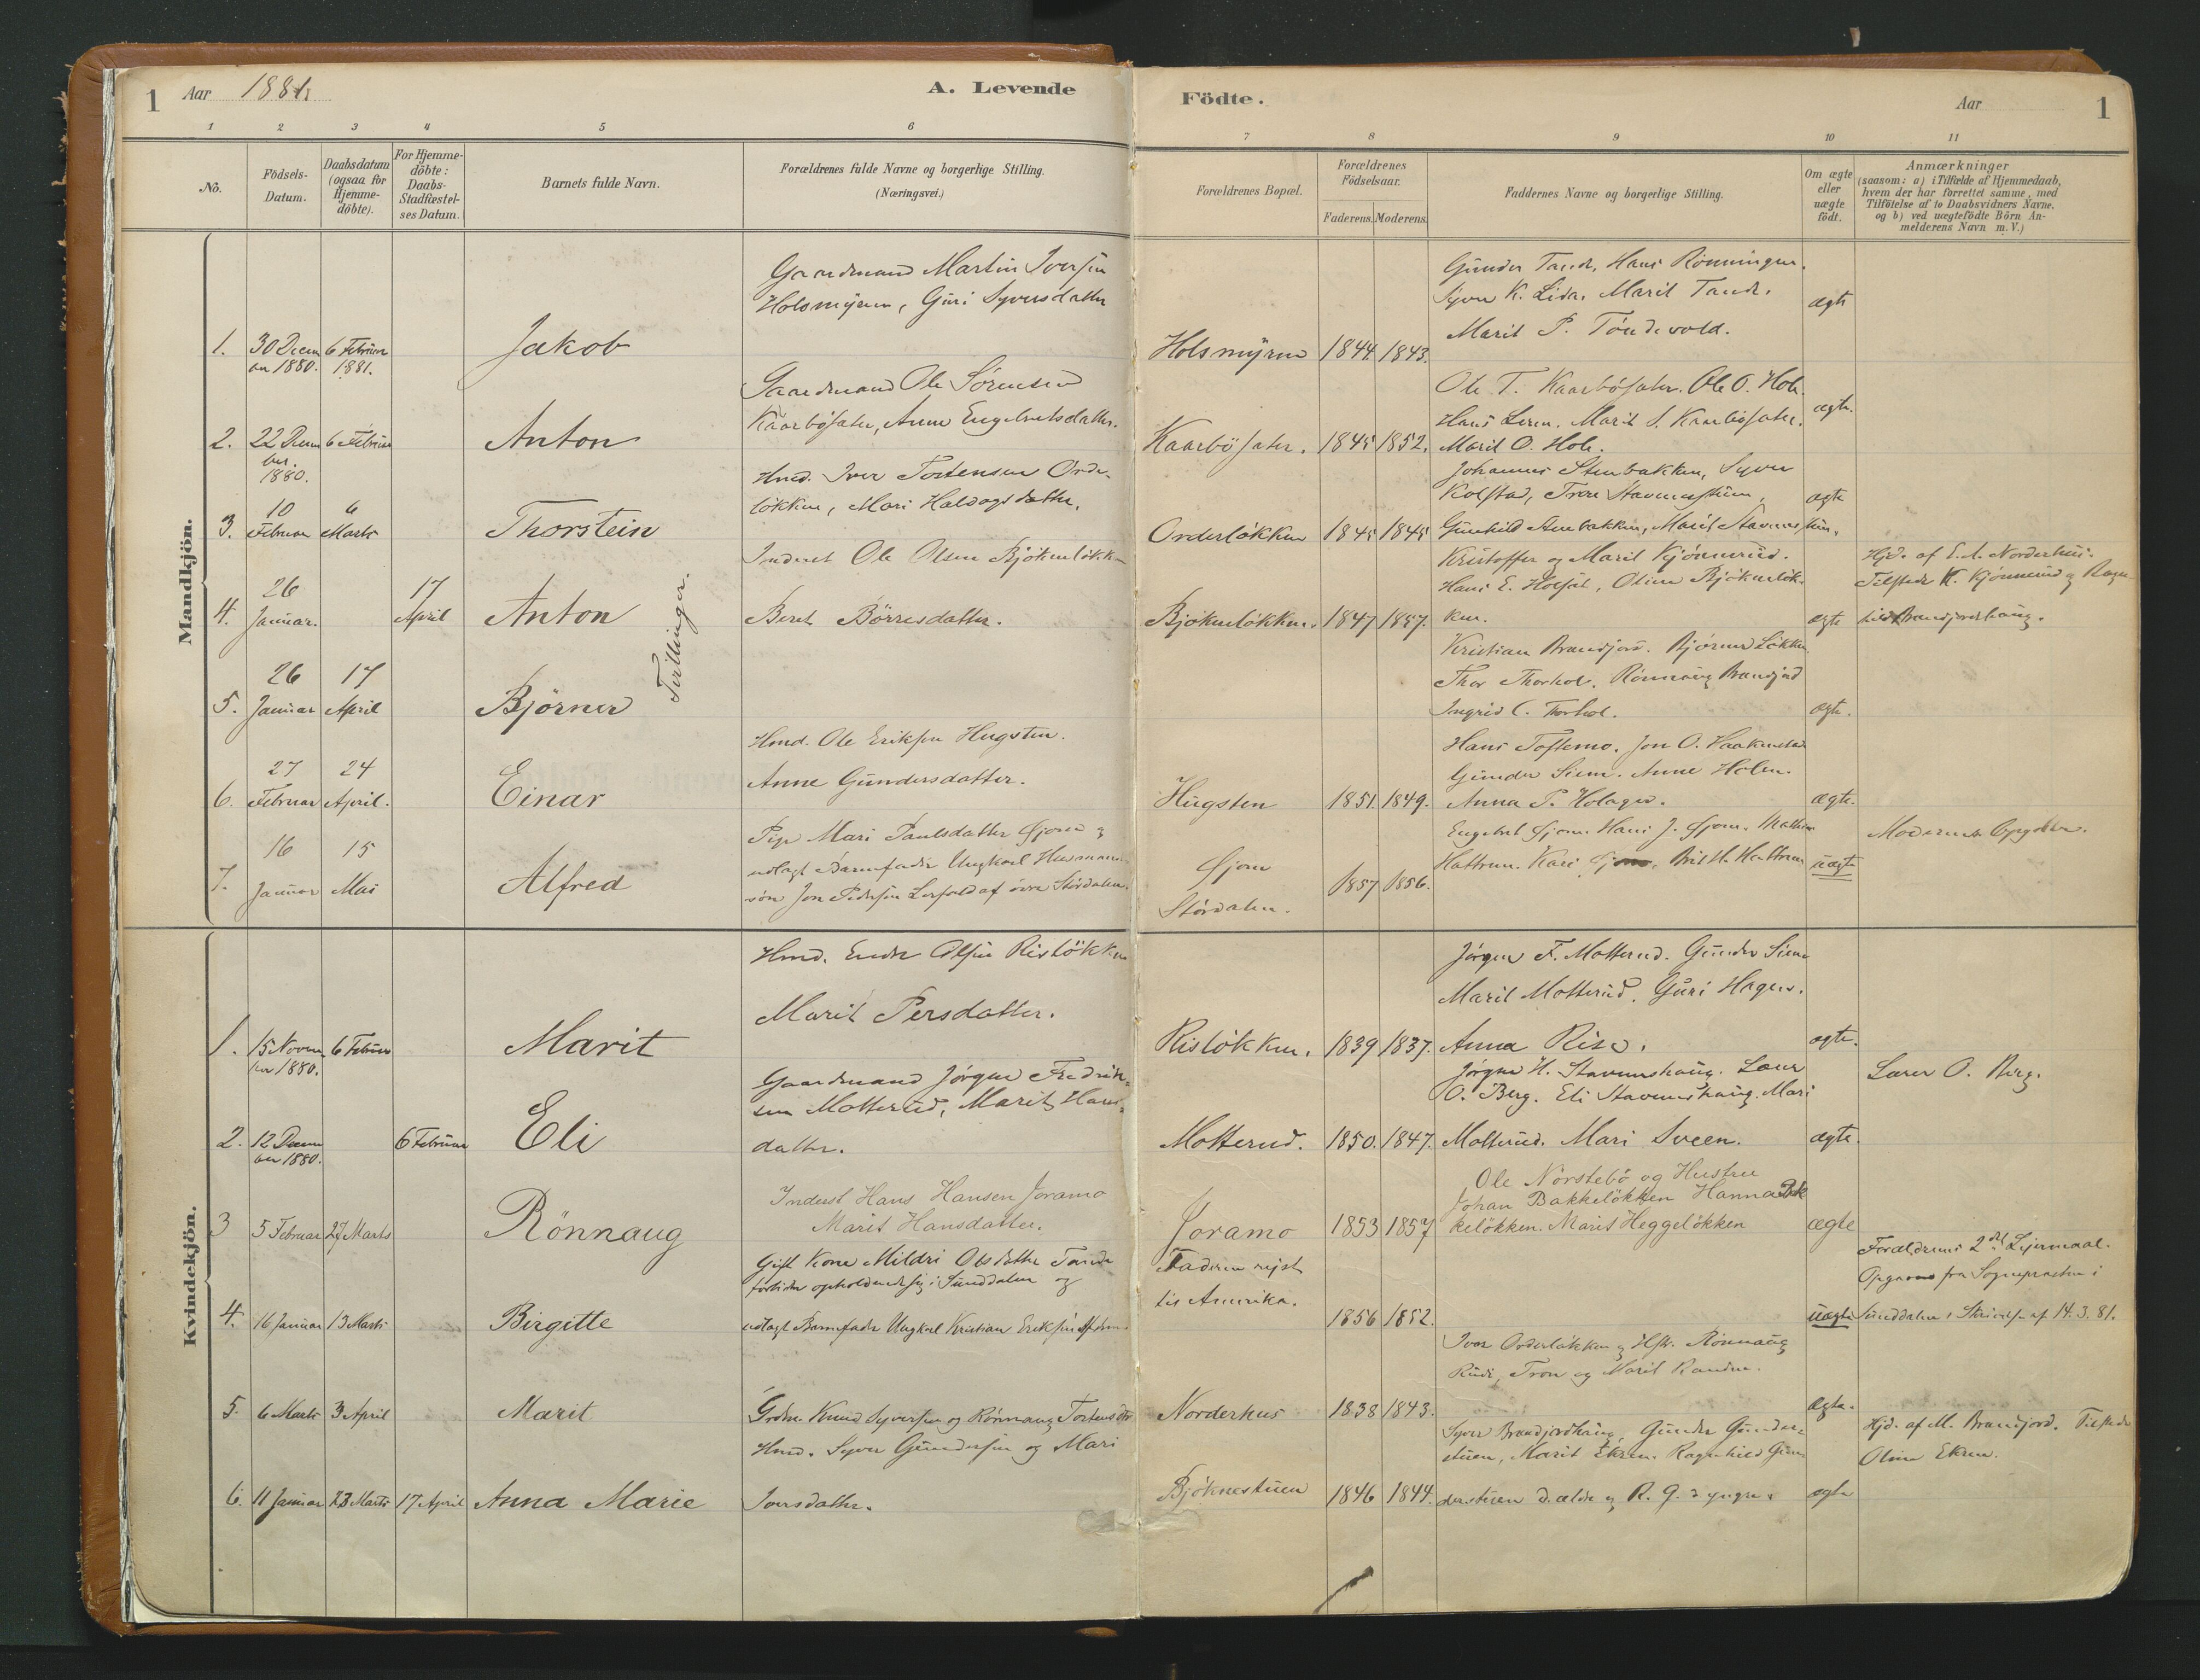 1 Aar 1881.
A. Levende Födte.
Aar 1
1 2 3 4 5 6 7 8 9 10 11
No.
Födsels-Datum.
Daabsdatum (ogsaa for Hjemme-döbte).
For Hjemme-döbte: Daabs-Stadfæstel-ses Datum.
Barnets fulde Navn.
Forældrenes fulde Navne og borgerlige Stilling.
(Næringsvei.)
Forældrenes Bopæl.
Forældrenes Födselsaar.
Faderens. Moderens.
Faddernes Navne og borgerlige Stilling.
Om ægte eller uægte födt.
Anmærkninger
(saasom: a) i Tilfælde af Hjemmedaab,
hvem der har forrettet samme, med
Tilföielse af to Daabsvidners Navne.
og b) ved uægtefödte Börn An-
melderens Navn m. V.)
Mandkjön.
1. 30 Decem
ber 1880. 6 Februar
1881. Jakob
Gaardmand Martin Iversen
Holsmyren, Guri Syversdatter
Holsmyren 1844. 1843.
Gunder Tande, Hans Rönningen.
Syver K. Lida. Marit Tande.
Marit P. Töndevold.
ægte
2. 22 Decem
ber.
1880. 6 Februar Anton
Gaardmand Ole Sörensen
Kaarbösater, Anne Engebretsdatter.
Kaarbösater. 1845 1852.
Ole T. Kaarbösater. Ole O. Hole
Hans Leren. Marit S. Kaarbösater.
Marit O. Hole.
ægte.
3. 10
Februar 6
Marts Thorstein
Hmd. Iver Tostensen Order-
lökken, Mari Haldogsdatter.
Orderlökken 1845 1845
Johannes Stenbakken, Syver
Kolstad, Trere Stavenstuen,
Gunhild Stenbakken, Marit Stavenstuen.
ægte
4. 26
Januar. 17
April Anton
Tvillinger.
Inderst Ole Olsen Bjökenlökk-
Beret Börresdatter.
Bjökenlökken. 1847 1857.
Kristoffer og Marit Kjönnerud.
Hans E. Holsät, Oline Bjökenlök-
ken.
ægte
Hjd. af E. A. Norderhus.
Tilstede K. Kjönnerud og Ragn-
hild Brandjordhaug.
5. 26
Januar 17
April Björner
Kristian Brandjord. Björner Lökken
Thor Thorhol. Rönnaug Brandjord
Ingrid C. Thorhol.
ægte.
6. 27
Februar 24
April. Einar
Hmd. Ole Eriksen Hugsten.
Anne Gundersdatter.
Hugsten 1851. 1849.
Hans Toftemo. Jon O. Haakenstad
Gunder Siem. Anne Holen.
Anna P. Holager.
ægte.
7. 16
Januar 15
Mai Alfred
Pige Mari Paulsdatter Gjom og
udlagt Barnefader Ungkarl Husmands-
sön Jon Pedersen Lerfald af övre Stördalen.
Gjom
Stördalen. 1857 1856.
Engebret Gjom. Hans J. Gjom. Mathias
Hattrem. Kari Gjom. Brit H. Hattrem
uægte
Moderens Opgivelse.
Kvindekjön.
1. 15 Novem
ber 1880. 6 Februar Marit
Hmd. Endre Olsen Rislökken
Marit Persdatter.
Rislökken. 1839 1837.
Jörgen F. Motterud. Gunder Siem
Marit Motterud. Guri Hagen.
Anna Rise.
ægte.
2. 12 Decem
ber 1880. 6 Februar Eli
Gaardmand Jörgen Fredrik-
sen Motterud, Marit Hans-
datter.
Motterud. 1850. 1847.
Jörgen H. Stavenshaug. Lærer
O. Berg. Eli Stavenshaug. Mari
Motterud. Mari Sveen.
ægte.
Lærer O. Berg.
3 5 Februar 27 Marts Rönnaug
Inderst Hans Hansen Joramo
Marit Hansdatter.
Joramo 1853 1857
Ole Norstebö og Hustru
Johan Bakkelökken Hanna Bak
kelökken. Marit Heggelökken
ægte
4. 16 Januar 13 Marts Birgitte
Gift Kone Mildri Olsdatter Tande
fortiden opholdende sig i Sunddalen og
udlagt Barnefader Ungkarl Kristian Eriksen
Faderen rejst
til Amerika. 1856 1852.
uægte
Forældrenes 2det Lejermaal.
Opgave fra Sognepræsten i
Sunddalen i Skrivelse af 14.3.81.
5. 6 Marts 3 April Marit
Grdm. Knud Syversen og Rönnaug Tostensdtr
Norderhus 1838 1843.
Iver Orderlökken og Hstr. Rönnaug
Rudi, Tron og Marit Randen.
ægte.
6. 11 Januar 23 Marts 17 April Anna Marie
Hmd. Syver Gundersen og Mari
Iversdatter.
Bjöknestuen 1846 1844.
Syver Brandjordhaug, Gunder Gunder-
stuen, Marit Ekren. Ragnhild Gun-
derstuen d. ældre og R. G. d. yngre.
ægte
Hjd. af M. Brandjord. Tilstede
Oline Ekren.